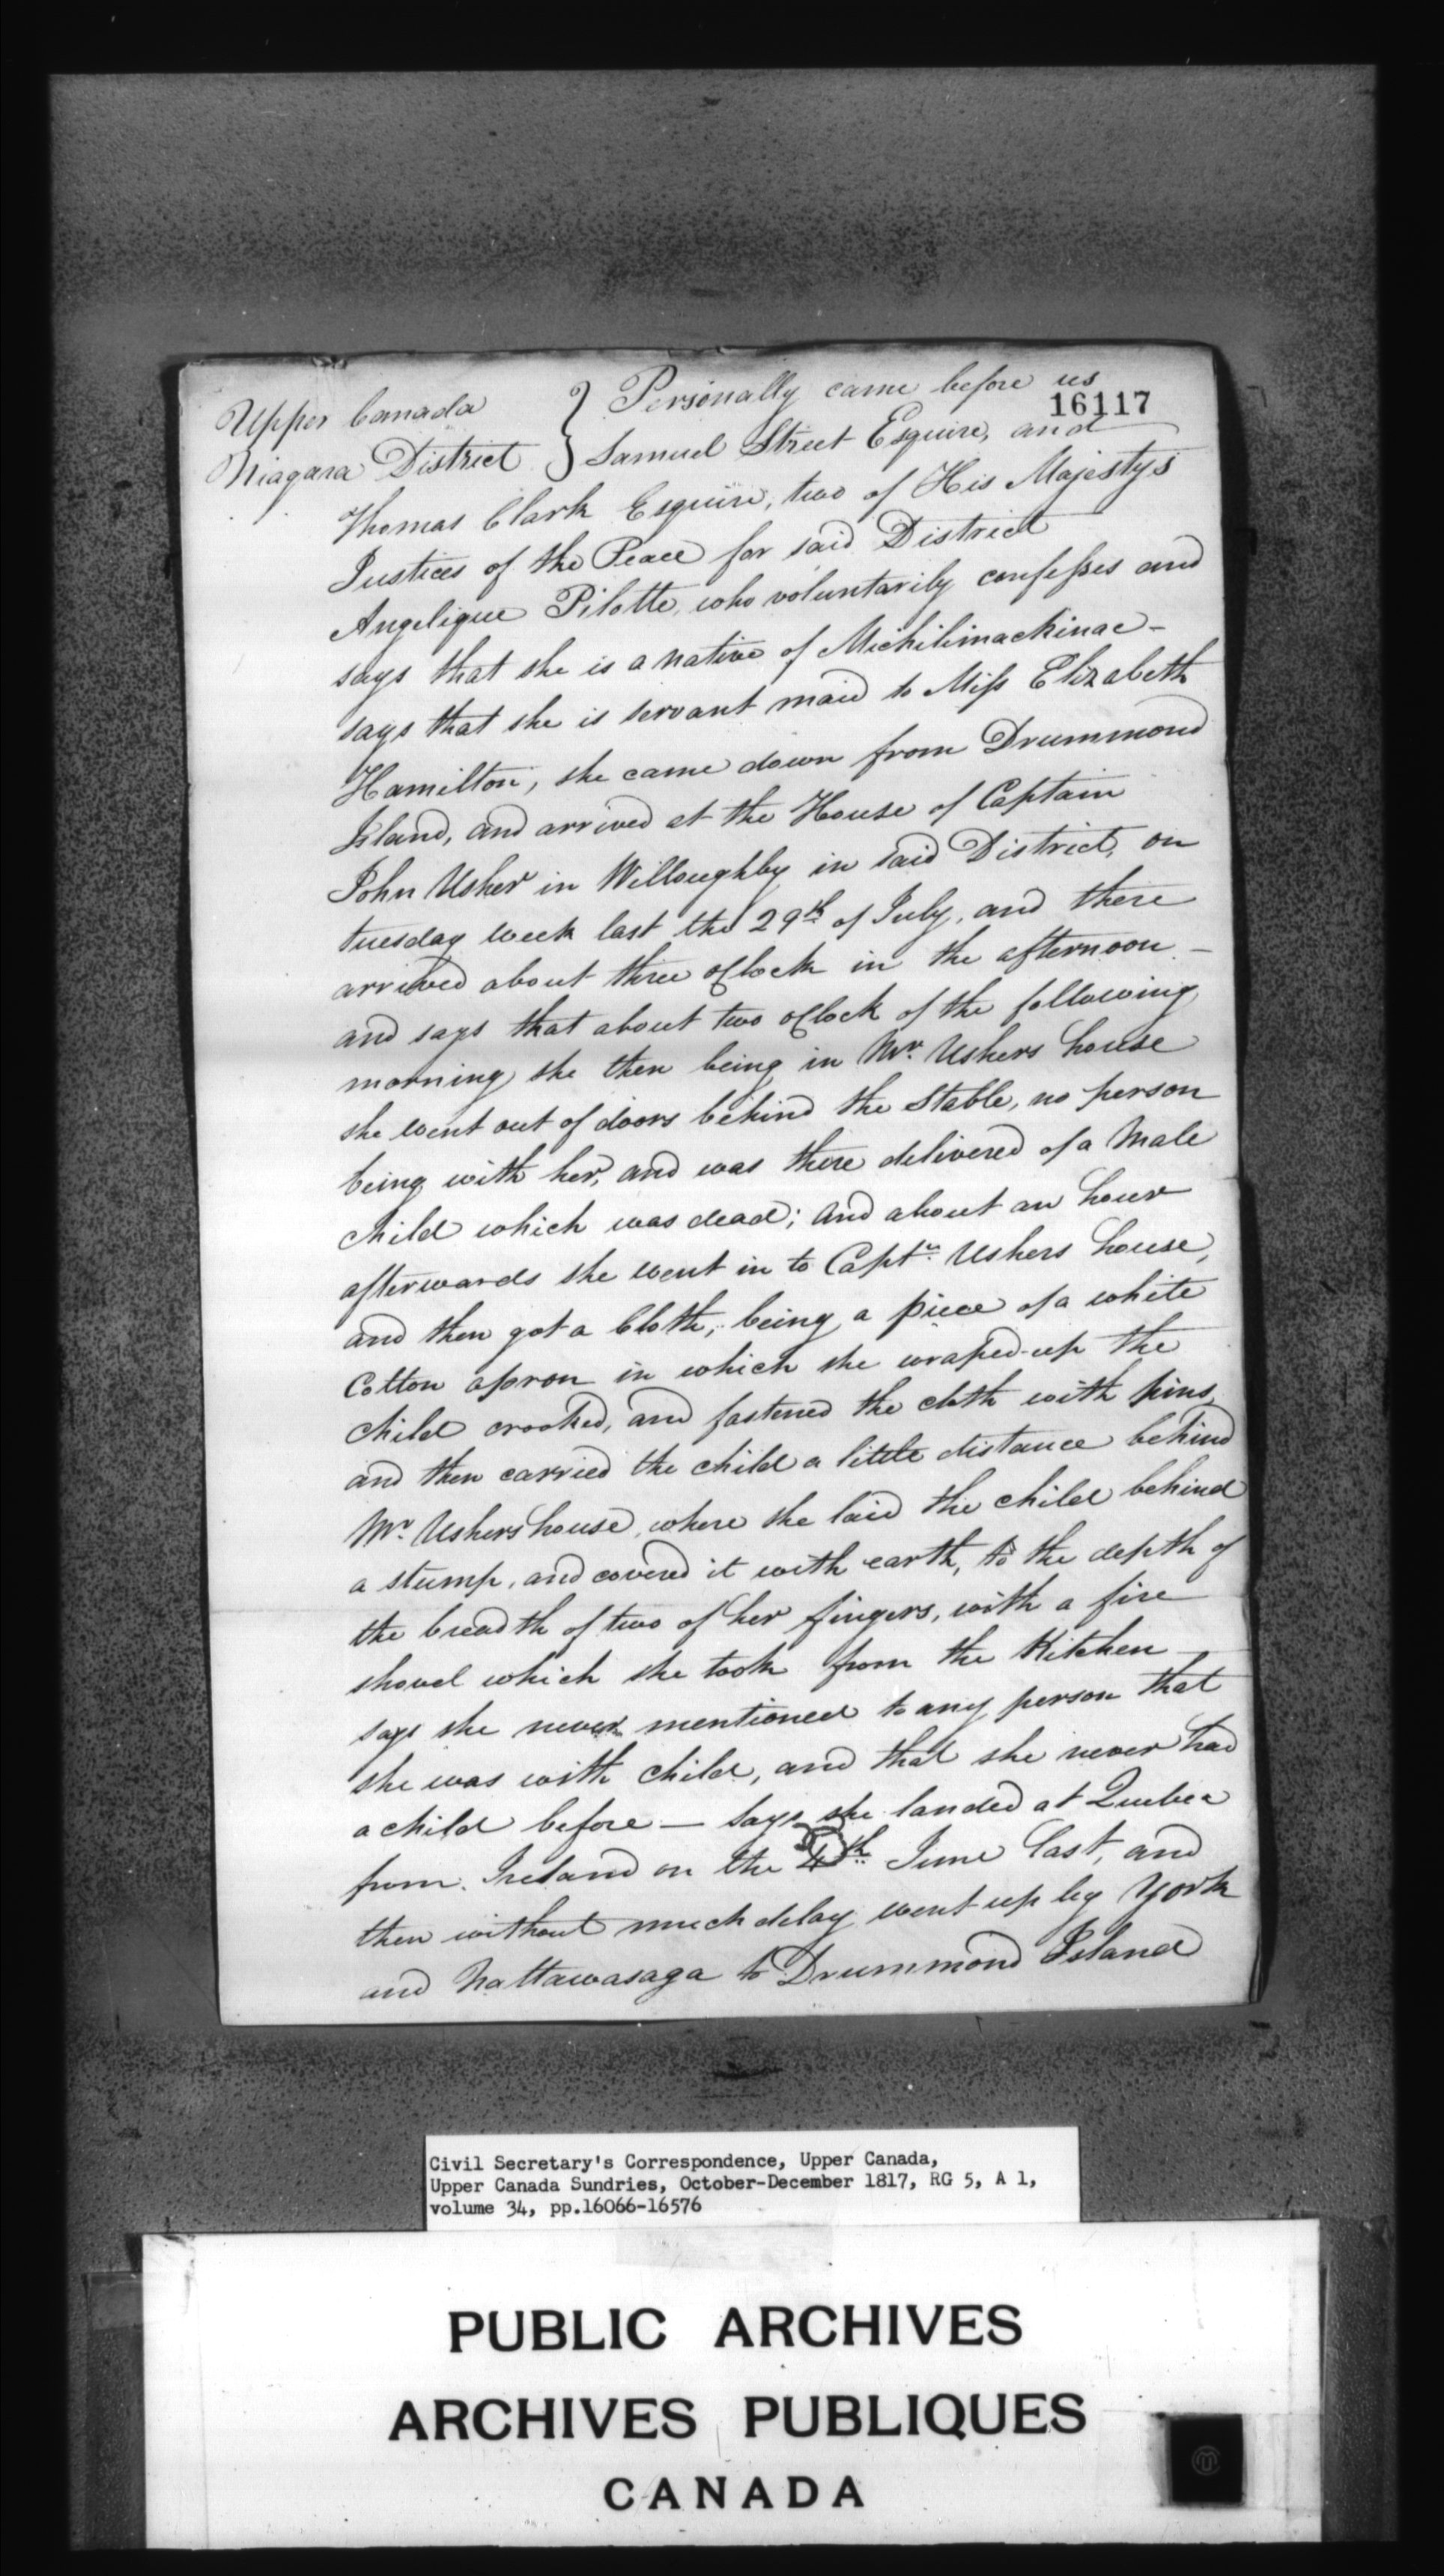 Upper Canada } Personally came before us
16117
Niagara District } Samuel Street Esquire, and
Thomas Clark Esquire, two of His Majesty's
Justices of the Peace for said District
Angelique Pilotte, who voluntarily confesses and
says that she is a native of Michilimackinac -
says that she is servant maid to Miss Elizabeth
Hamilton, she came down from Drummond
Island, and arrived at the House of Captain
John Usher in Willoughby in said District, on
tuesday week last the 29th of July, and there
arrived about three oClock in the afternoon -
and says that about two oClock of the following
morning she then being in Mr. Ushers house
she went out of doors behind the Stable, no person
being with her, and was there delivered of a Male
child which was dead; and about an hour
afterwards she went in to Captn. Ushers house,
and then got a Cloth, being a piece of a white
Cotton apron in which she wraped up the
child crooked, and fastened the cloth with pins,
and then carried the child a little distance behind
Mr. Ushers house, where she laid the child behind
a stump, and covered it with earth, to the depth of
the breadth of two of her fingers, with a fire
shovel which she took from the Kitchen -
says she never mentioned to any person that
she was with child, and that she never had
a child before — says she landed at Quebec
from Ireland on the June last, and
then without much delay went up by York
and Nattawasaga to Drummond Island
Civil Secretary's Correspondence, Upper Canada,
Upper Canada Sundries, October-December 1817, RG 5, A 1,
volume 34, pp.16066-16576
PUBLIC ARCHIVES
ARCHIVES PUBLIQUES
CANADA